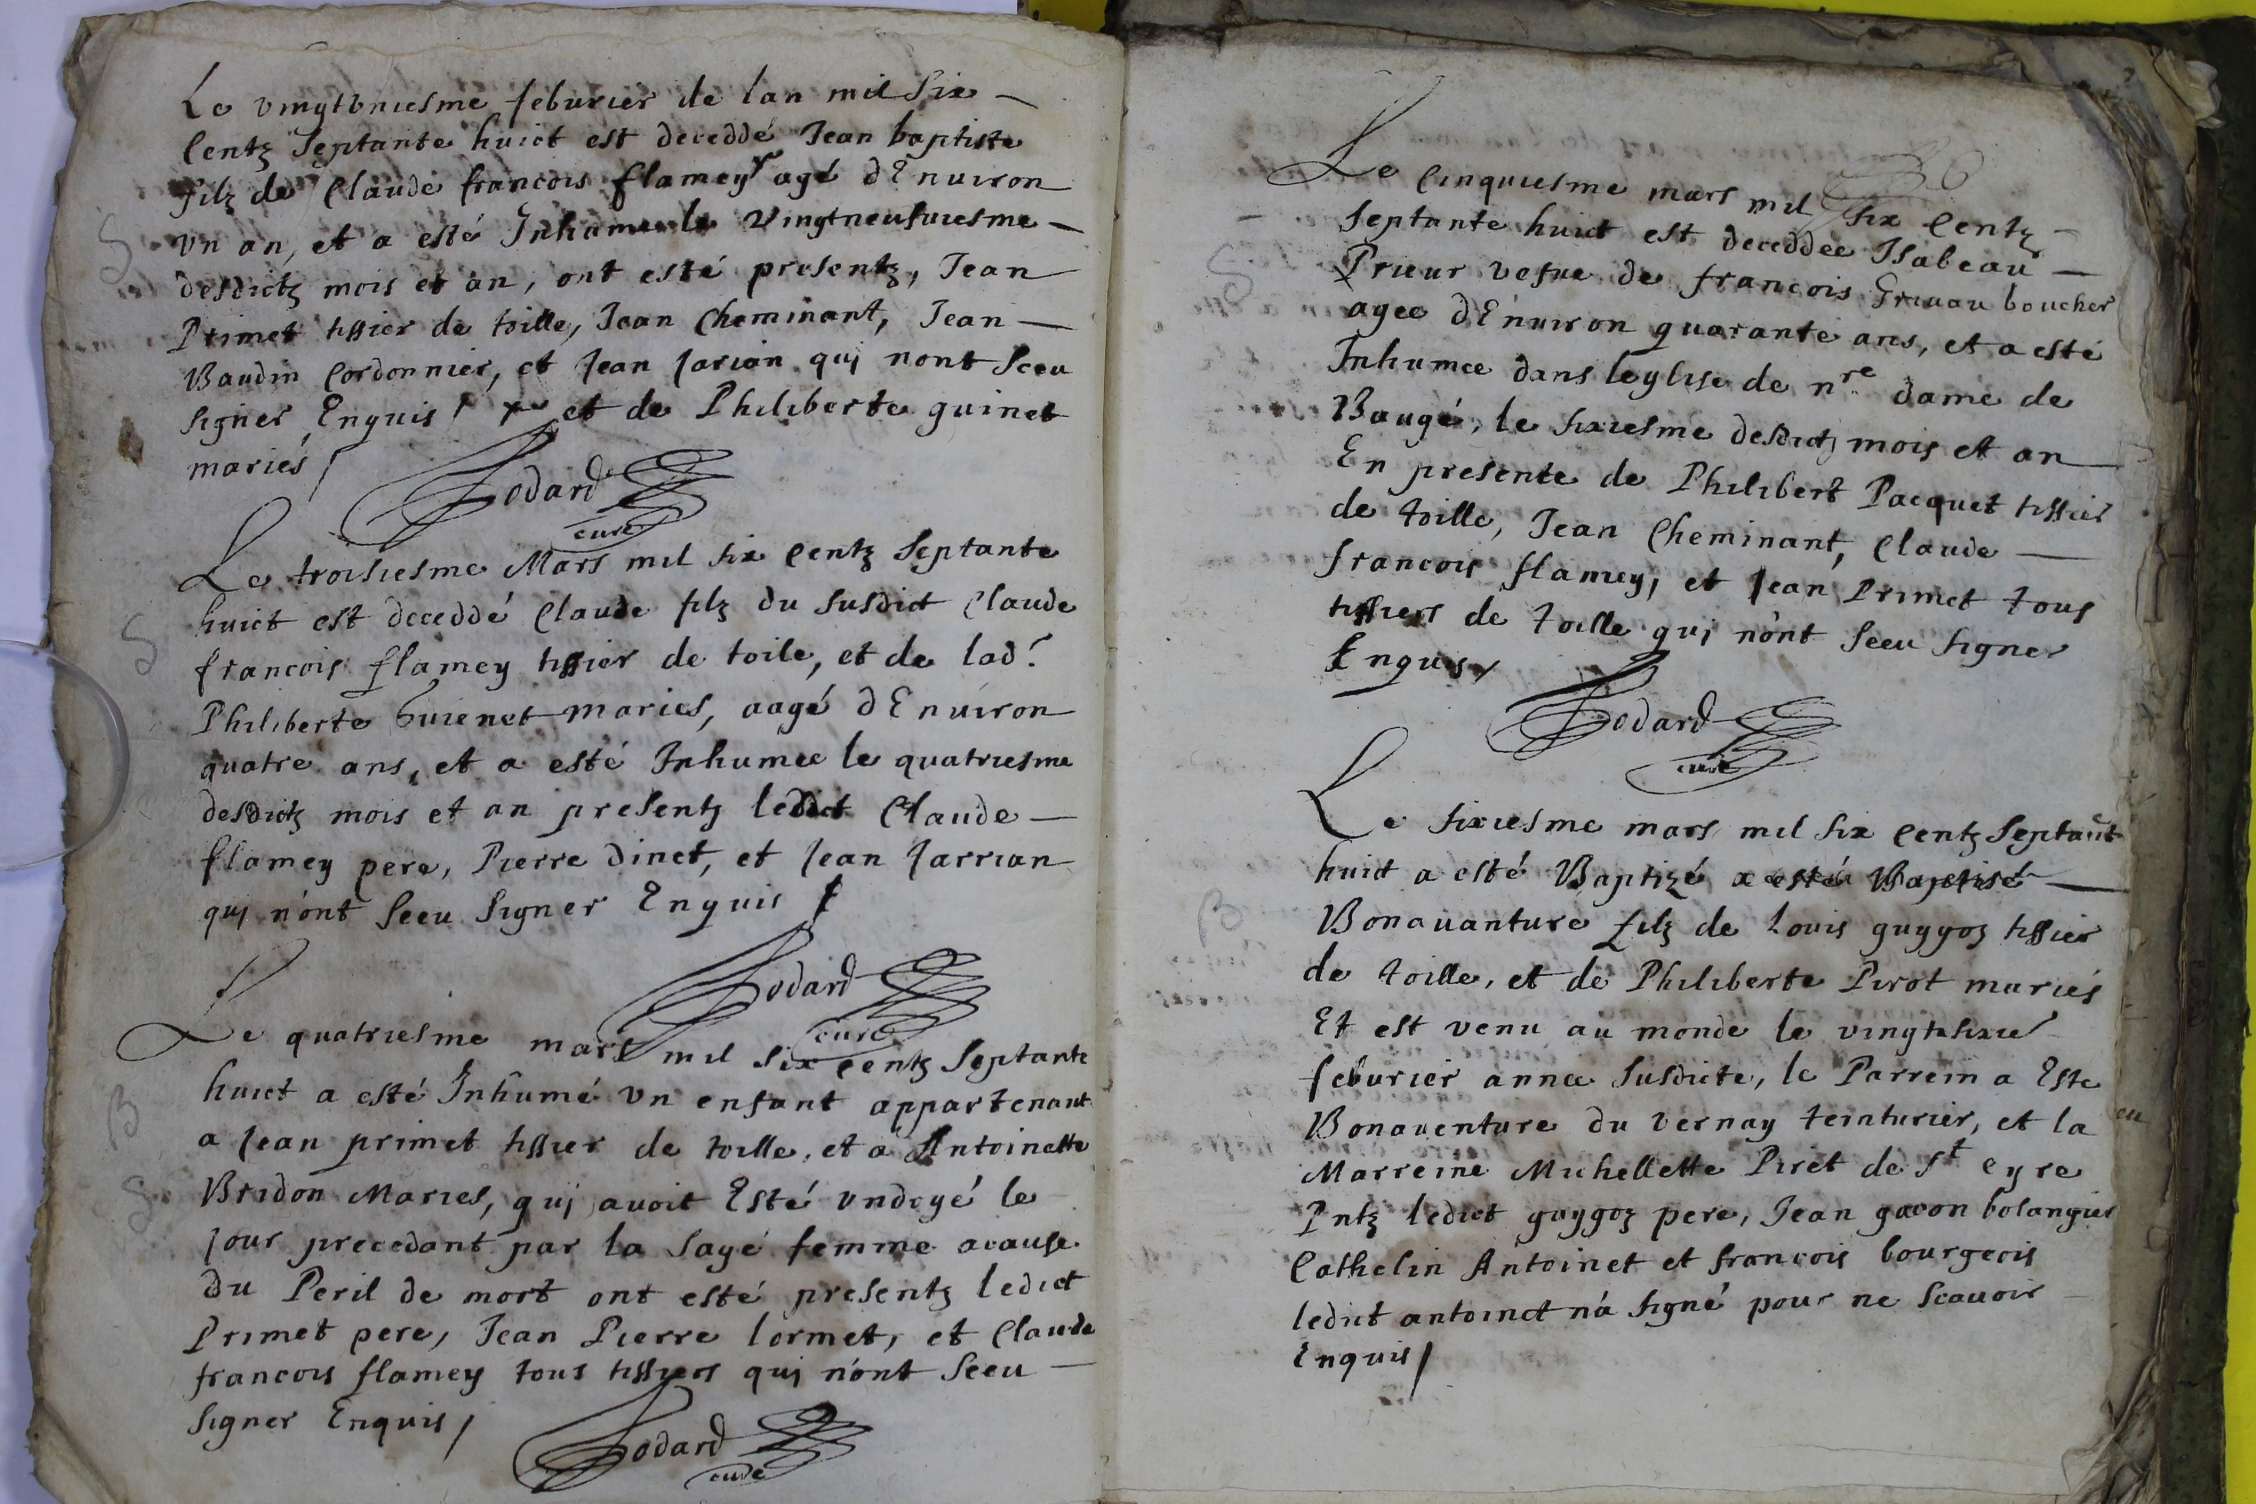 Le vingtvniesme feburier de lan mil six
Centz septante huict est deceddé Jean baptiste
filz de Claude francois flamey agé dEnuiron
vn an, et a esté Inhume le vingtneufuiesme
desdictz mois et an, ont esté presentz, Jean
Primet tissier de toille, Jean Cheminant, Jean
Baudin Cordonnier, et Jean Jarian qui nont sceu
signer Enquis / et de Philiberte guinet
mariés /
Godard
curé
Le troisiesme Mars mil six Centz Septante
huict est deceddé Claude filz du susdict Claude
francois flamey tissier de toile, et de lad.
Philiberte Guienet maries, aagé dEnuiron
quatre ans, et a esté Inhumee le quatriesme
desdictz mois et an presentz ledict Claude
flamey pere, Pierre dinet, et Jean Jarrian
qui n'ont sceu signer Enquis
Godard
curé
Le quatriesme mars mil six Centz Septante
huict a esté Inhumé vn enfant appartenant
a Jean primet tissier de toille, et a Antoinette
Bridon Maries, qui avoit Esté vndoyé le
jour precedant par la sage femme acause
du Peril de mort ont esté presentz ledict
Primet pere, Jean Pierre lormet, et Claude
francois flamey tous tissiers qui n'ont sceu
signer Enquis /
Godard
curé
Le Cinquiesme mars mil six Centz
septante huict est deceddée Isabeau
Prieur vefue de francois boucher
agee dEnuiron quarante ans, et a esté
Inhumee dans leglise de nre dame de
Baugé, le sixiesme desdictz mois et an
En presente de Philibert Pacquet tissier
de toille, Jean Cheminant, Claude
francois flamey, et Jean Primet tous
tissiers de toille qui n'ont sceu signer
Enquis /
Godard
curé
Le sixiesme mars mil six Centz septant
huict a esté Baptizé a esté Baptisé
Bonauanture filz de Louis guygoz tissier
de toille, et de Philiberte Pirot mariés
Et est venu au monde le vingtsixie
feburier annee susdicte, le Parrein a Este
Bonauenture du vernay teinturier, et la
Marreine Michellette Piret de St eyre
Pntz ledict guygoz pere, Jean gacon bolangier
Cathelin Antoinet et francois bourgeois
ledict antoinet n'a signé pour ne scauoir
Enquis /